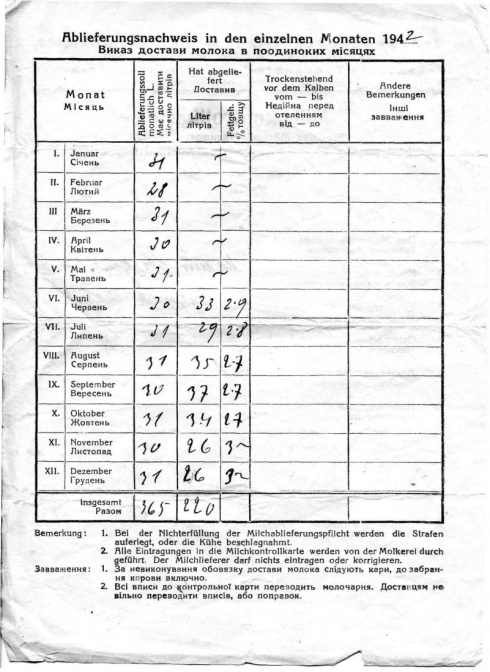 Ablieferungsnachweis in den einzelnen Monaten 1942
Виказ достави молока в поодиноких місяцях
Monat
Місяць
Ablieferungssoll
monatlich L.
Має доставити
місячно літрів
Hat abgelie-
fert
Доставив
Liter
літрів
Fettgeh.
% товщу
Trockenstehend
vor dem Kalben
vom — bis
Недійна перед
отеленням
від — до
Andere
Bemerkungen
Інші
завваження
I. Januar 31 ~
Січень
II. Februar 28 ~
Лютий
III März 31 ~
Березень
IV. April 30 ~
Квітень
V. Mai 31. ~
Травень
VI. Juni 30 33 2·9
Червень
VII. Juli 31 29 2·8
Липень
VIII. August 31 35 2·7
Серпень
IX. September 30 37 2·7
Вересень
X. Oktober 31 34 27
Жовтень
XI. November 30 26 3~
Листопад
XII. Dezember 31 26 3~
Грудень
Insgesamt 365 220
Разом
Bemerkung: 1. Bei der Nichterfüllung der Milchablieferungspflicht werden die Strafen
auferlegt, oder die Kühe beschlagnahmt.
2. Alle Eintragungen in die Milchkontrollkarte werden von der Molkerei durch
geführt. Der Milchlieferer darf nichts eintragen oder korrigieren.
Завваження: 1. За невиконування обовязку достави молока слідують кари, до забран-
ня корови включно.
2. Всі вписи до контрольної карти переводить молочарня. Доставцям не
вільно переводити вписів, або поправок.